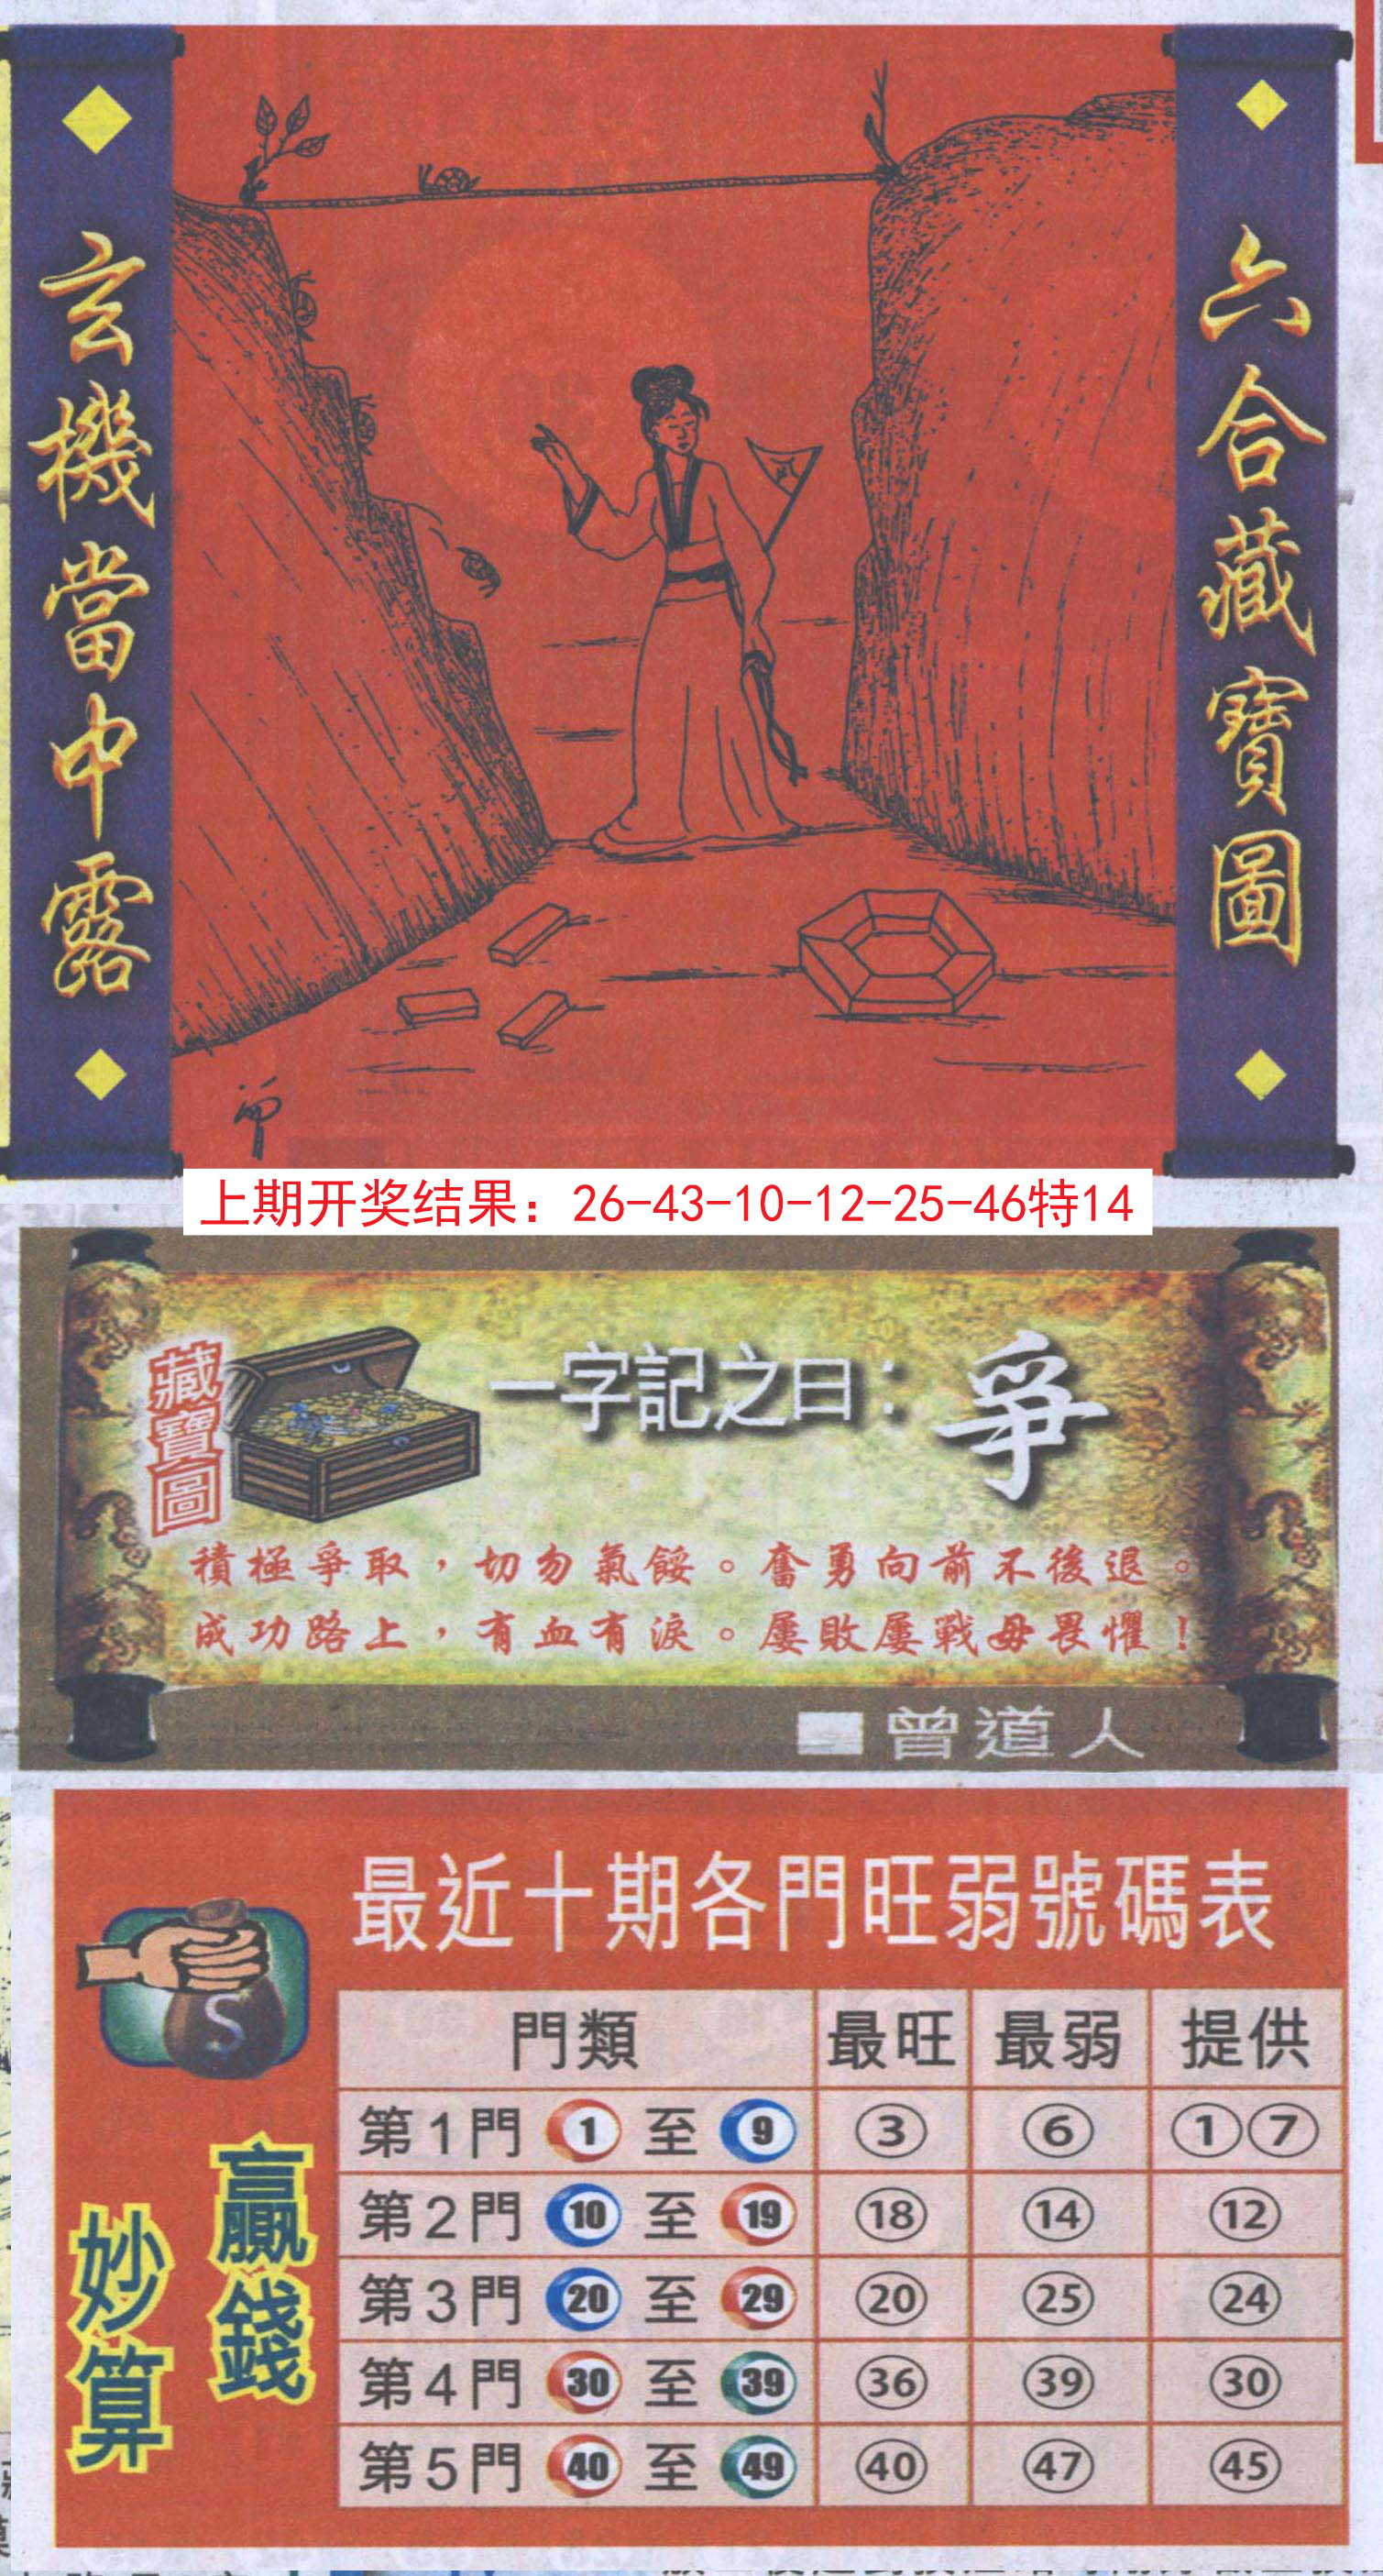 六合藏寶圖
玄機當中露
上期开奖结果：26-43-10-12-25-46特14
藏寶圖
一字記之曰：爭
積極爭取，切勿氣餒。奮勇向前不後退。
成功路上，有血有淚。屢敗屢戰毋畏懼！
曾道人
最近十期各門旺弱號碼表
贏錢
妙算
$
門類 最旺 最弱 提供
第1門 1 至 9 ③ ⑥ ①⑦
第2門 10 至 19 ⑱ ⑭ ⑫
第3門 20 至 29 ⑳ ㉕ ㉔
第4門 30 至 39 ㊱ ㊴ ㉚
第5門 40 至 49 ㊵ ㊼ ㊺